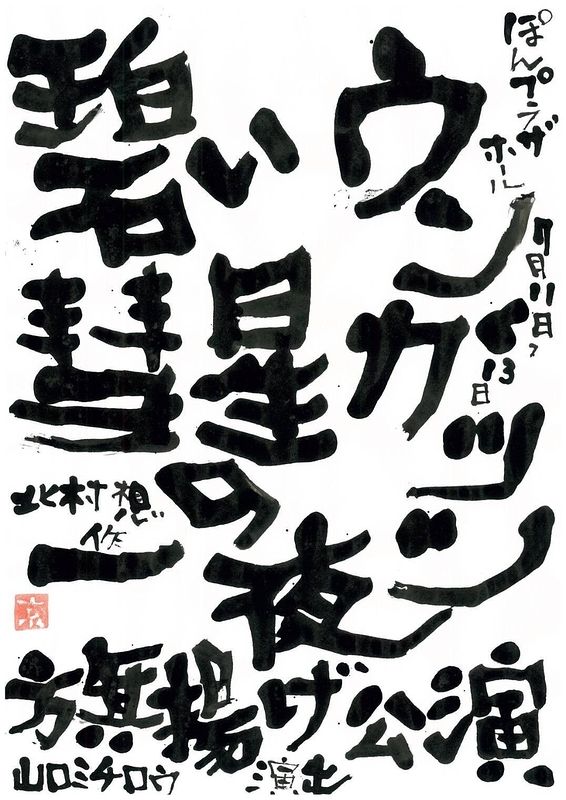 ぽんプラザ
ホール
7月11日〜
13日
ウンガツン
碧い
彗星の
一夜
北村想
作
旗揚げ公演
山口ミチロウ 演出